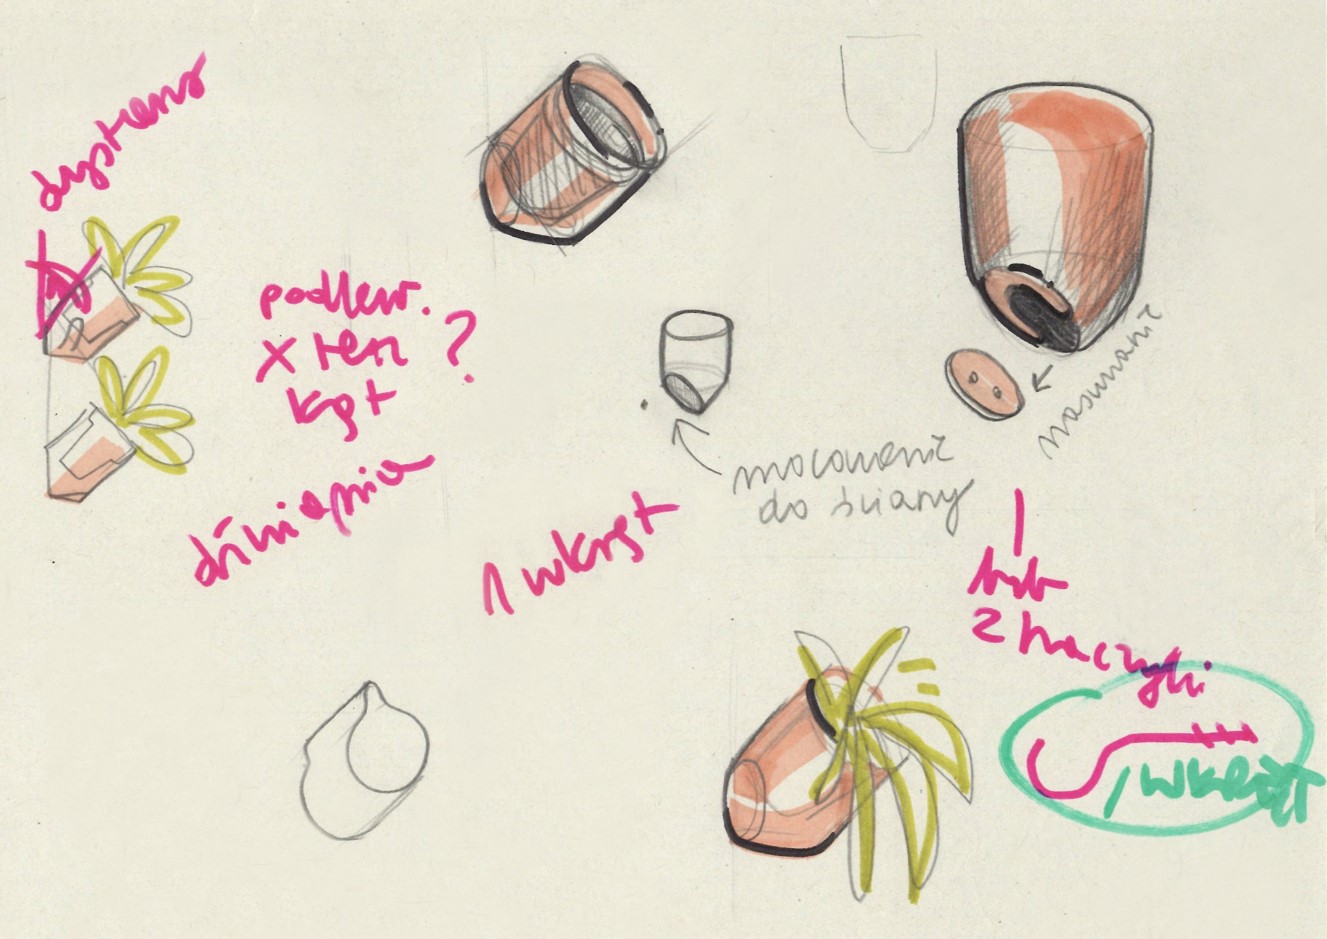 dystans
podlew.
X ten ?
kąt
dźwignia
1 wkręt
mocowanie
do ściany
nasuwanie
lub
2 haczyki
1 WKRĘT